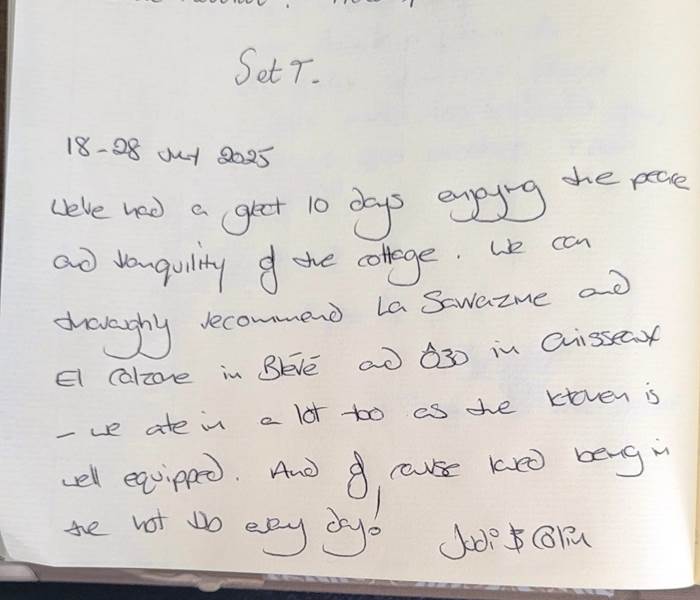 Set T.
18-28 July 2025
We've had a great 10 days enjoying the peace
and tranquility of the cottage. We can
thoroughly recommend La Sawazne and
El Calzone in Bléré and Ô30 in Cuisseaux
- we ate in a lot too as the kitchen is
well equipped. And of course loved being in
the hot tub every day!
Jodi & Colin